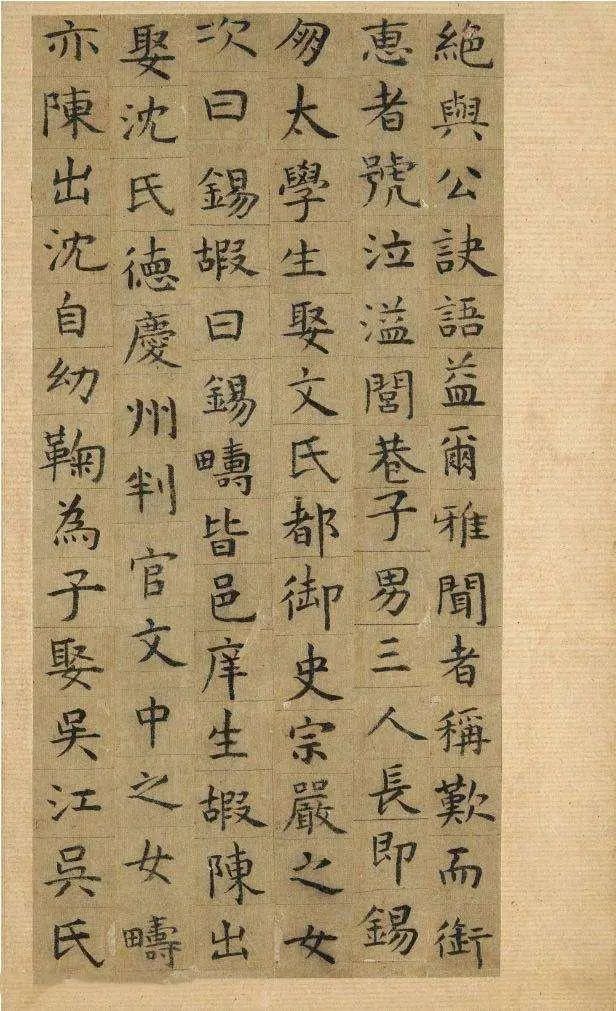 絕與公訣語益爾雅聞者稱歎而銜
恵者號泣溢閭巷子男三人長即錫
匆太學生娶文氏都御史宗嚴之女
次曰錫嘏曰錫疇皆邑庠生嘏陳出
娶沈氏德慶州判官文中之女疇
亦陳出沈自幼鞠為子娶吴江吴氏